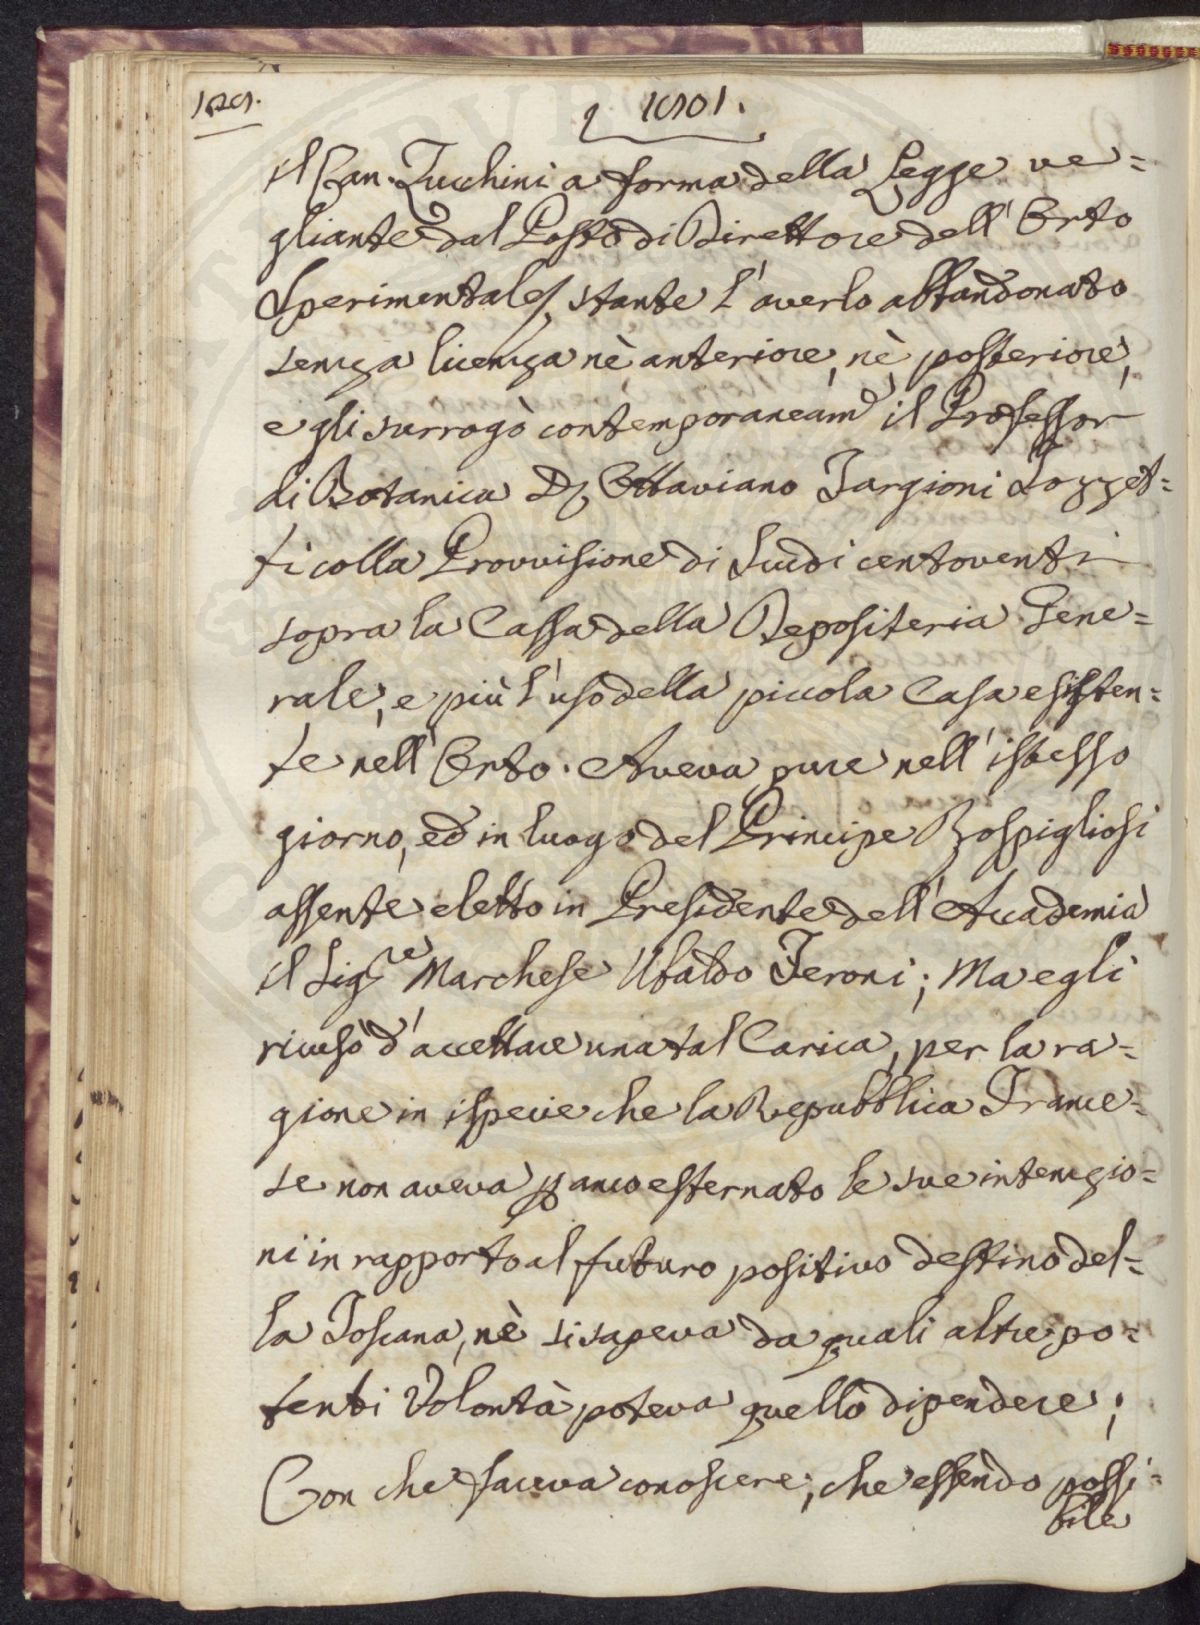 1801.
il Can. Zucchini a forma della Legge ve=
gliante dal Posto di Direttore dell'Orto
Sperimentale, stante l'averlo abbandonato
senza licenza nè anteriore, nè posteriore,
e gli surrogò contemporaneam.e il Professor
di Botanica D. Ottaviano Targioni Tozzet=
ti colla Provvisione di Scudi centoventi
sopra la Cassa della Depositeria Gene=
rale, e più l'uso della piccola Casa esisten=
te nell'Orto. Aveva pure nell'istesso
giorno, ed in luogo del Principe Rospigliosi
assente eletto in Presidente dell'Accademia
il Sig.re Marchese Ubaldo Feroni; Ma egli
ricusò d'accettare una tal Carica, per la ra=
gione in ispecie che la Repubblica France=
se non aveva p anco esternato le sue intenzio=
ni in rapporto al futuro positivo destino del=
la Toscana, nè si sapeva da quali altre po=
tenti Volontà poteva quello dipendere;
Con che faceva conoscere, che essendo possi=
bile